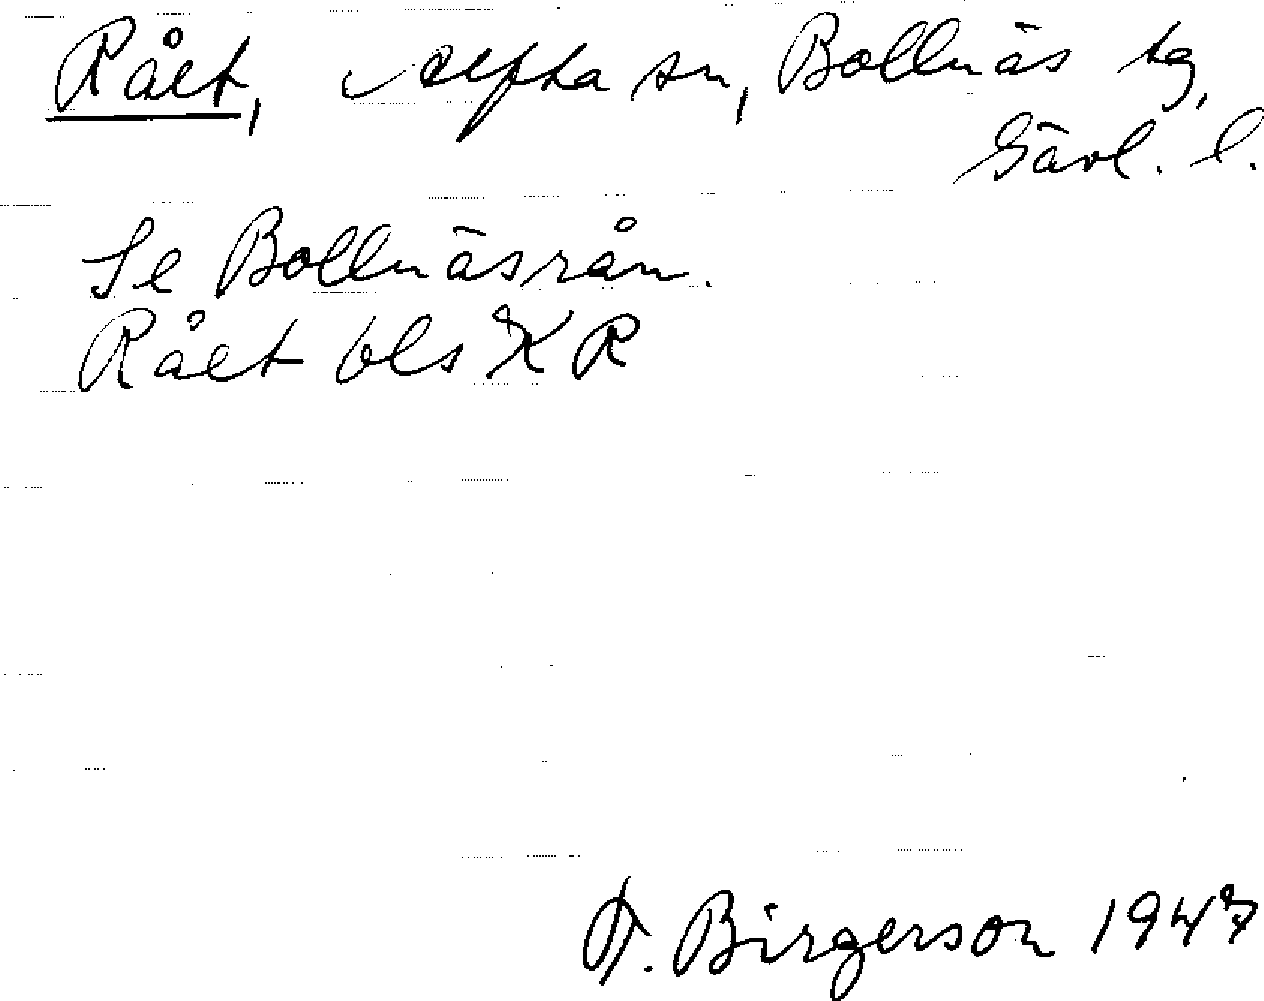 Rået, Alfta sn, Bollnäs tg,
Gävl. l.
Se Bollnäsrån.
Rået bls XK R
F. Birgerson 1947